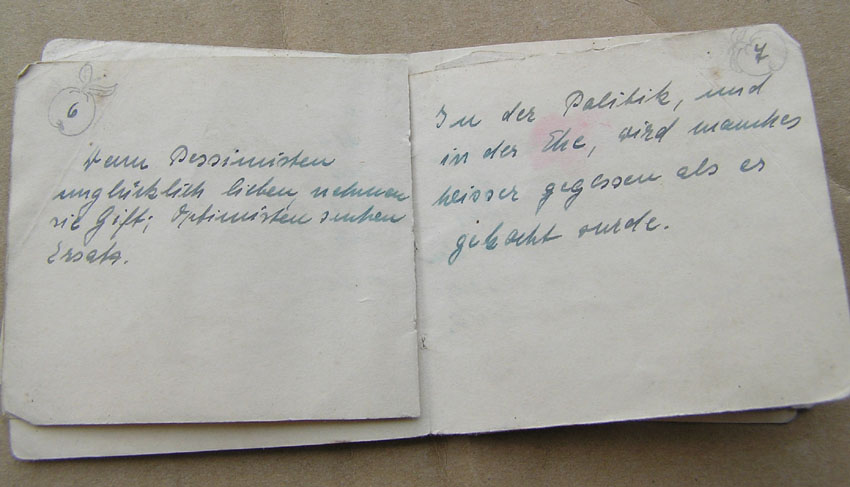 6
Wenn Pessimisten
unglücklich lieben nehmen
sie Gift; Optimisten suchen
Ersatz.
7
In der Politik, und
in der Ehe, wird manches
heisser gegessen als es
gekocht wurde.